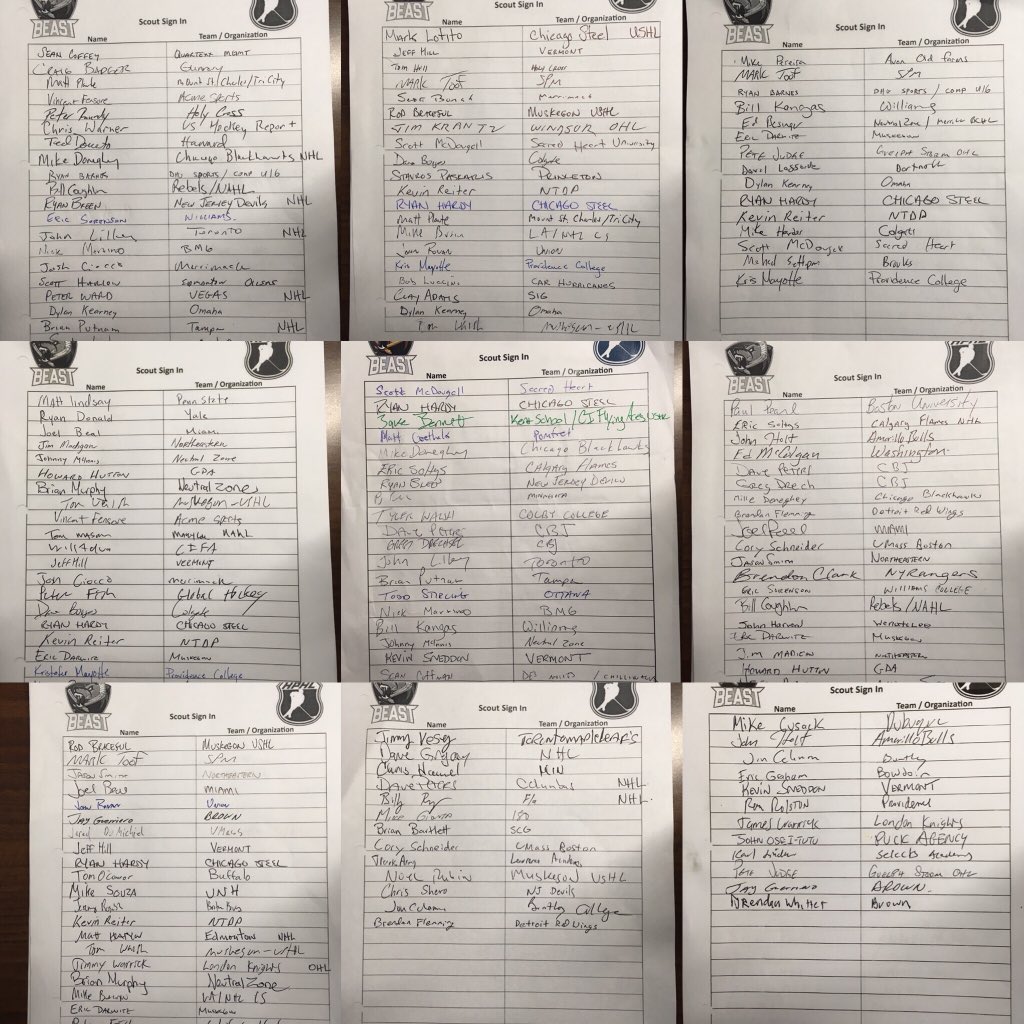 BEAST
Scout Sign In
Name Team / Organization
SEAN COFFEY QUARTEXX MGMT
CRAIG BADGER Gunnery
Matt Plante Mount St Charles/Tri City
Vincent Fensore Acme Sports
Peter Holy Cross
Chris Warner US Hockey Report
Ted Donato Harvard
Mike Doneghey Chicago Blackhawks NHL
RYAN BARNES DMG SPORTS / COMP U16
Bill Coughlin Rebels/NAHL
RYAN BREEN NEW JERSEY Devils NHL
ERIC SORENSON WILLIAMS.
John Lilley Toronto NHL
Nick Martino BMG
Josh Ciocco Merrimack
SCOTT HARLOW EDMONTON OILERS
PETER WARD VEGAS NHL
Dylan Kearney Omaha
Brian Putnam Tampa NHL
BEAST
Scout Sign In
Name Team / Organization
Mark Lotito Chicago Steel USHL
JEFF HILL VERMONT
TOM HILL HOLY CROSS
MARK TOOF SPM
Merrimack
ROD BRACEFUL MUSKEGON USHL
JIM KRANTZ WINDSOR OHL
Scott McDougall Sacred Heart University
Dana Borges Colgate
STAVROS PASKARIS PRINCETON
Kevin Reiter NTDP
RYAN HARDY CHICAGO STEEL
Matt Plante Mount St. Charles/Tri City
Mike LA/NHL CS
John Ronan Union
Kris Mayotte Providence College
Bob CAR HURRICANES
CLAY ADAMS SIG
Dylan Kearney Omaha
Tom Muskegon-USHL
BEAST
Name Team / Organization
Mike Pereira Avon Old Farms
MARK TOOF SPM
RYAN BARNES DMG SPORTS / COMP U16
Bill Kangas Williams
Ed Neutral Zone /
ERIC DARWITZ MUSKEGON
PETE JUDGE GUELPH STORM OHL
David Lassonde Dartmouth
Dylan Kearney Omaha
RYAN HARDY CHICAGO STEEL
Kevin Reiter NTDP
Mike Harder Colgate
SCOTT McDOUGALL Sacred Heart
Brooks
Kris Mayotte Providence College
BEAST
Scout Sign In
Name Team / Organization
Matt Lindsay Penn State
Ryan Donald Yale
Joel Beal Miami
Jim Madigan Northeastern
Johnny McInnis Neutral Zone
HOWARD HUTTON GDA
Brian Murphy Neutral Zone
Tom Muskegon-USHL
Vincent Fensore Acme Sports
Tom
Jeff Hill VERMONT
Josh Ciocco Merrimack
Peter Fish Global Hockey
Dana Borges Colgate
RYAN HARDY CHICAGO STEEL
Kevin Reiter NTDP
ERIC DARWITZ MUSKEGON
Kristofer Mayotte Providence College
BEAST
Scout Sign In
Name Team / Organization
Scott McDougall Sacred Heart
RYAN HARDY CHICAGO STEEL
Dave Bennett Kent School /
Matt Pomfret
Mike Doneghey Chicago Blackhawks
ERIC SOLTYS CALGARY FLAMES
NEW JERSEY DEVILS
MINNESOTA
TYLER WALSH COLBY COLLEGE
DAVE PETRI CBJ
GREG DRECHSEL CBJ
John Lilley TORONTO
Brian Putnam Tampa
TODD STIRLING OTTAWA
Nick Martino BMG
Bill Kangas Williams
Johnny McInnis Neutral Zone
KEVIN SNEDDON VERMONT
BEAST
Scout Sign In
Name Team / Organization
Paul Pearl Boston University
Eric Soltys Calgary Flames NHL
John Holt Amarillo Bulls
Ed McColgan Washington
DAVE PETRI CBJ
Greg CBJ
Mike Doneghey Chicago Blackhawks
Brendan Flemming Detroit Red Wings
MIAMI
Cory Schneider UMass Boston
JASON SMITH NORTHEASTERN
Brendon Clark NY Rangers
ERIC SORENSON WILLIAMS COLLEGE
Bill Coughlin Rebels/NAHL
John
ERIC DARWITZ MUSKEGON
JIM MADIGAN NORTHEASTERN
HOWARD HUTTON GDA
BEAST
Scout Sign In
Name Team / Organization
ROD BRACEFUL MUSKEGON USHL
MARK TOOF SPM
JASON SMITH NORTHEASTERN
Joel Beal MIAMI
John Ronan Union
JAY Guerriero BROWN
Jared DeMichiel UMass
JEFF HILL VERMONT
RYAN HARDY CHICAGO STEEL
Tom O'Connor Buffalo
MIKE SOUZA UNH
Kevin Reiter NTDP
MATT Edmonton NHL
Tom Muskegon-USHL
Jimmy Warrick London Knights OHL
Brian Murphy Neutral Zone
Mike LA/NHL CS
ERIC DARWITZ MUSKEGON
BEAST
Scout Sign In
Name Team / Organization
Jimmy Vesey TORONTO MAPLE LEAFS
Dave Gregory NHL
Chris Hamel MIN
Dave Columbus NHL
Billy Fla NHL.
Mike Gionta 180
Brian Bartlett SCG
Cory Schneider UMass Boston
Lawrence Academy
Noel Rubin Muskegon USHL
Chris Shero NJ Devils
Jon Coleman Bentley College
Brendan Flemming Detroit Red Wings
BEAST
Scout Sign In
Name Team / Organization
Mike Cusack Dubuque
John Holt Amarillo Bulls
Jon Coleman Bentley
Eric Graham Bowdoin
KEVIN SNEDDON VERMONT
Ron ROLSTON Providence
James Warrick London Knights
JOHN OSEI-TUTU PUCK AGENCY
Karl Selects Academy
PETE JUDGE GUELPH STORM OHL
JAY Guerriero BROWN.
Brendan Whittet Brown